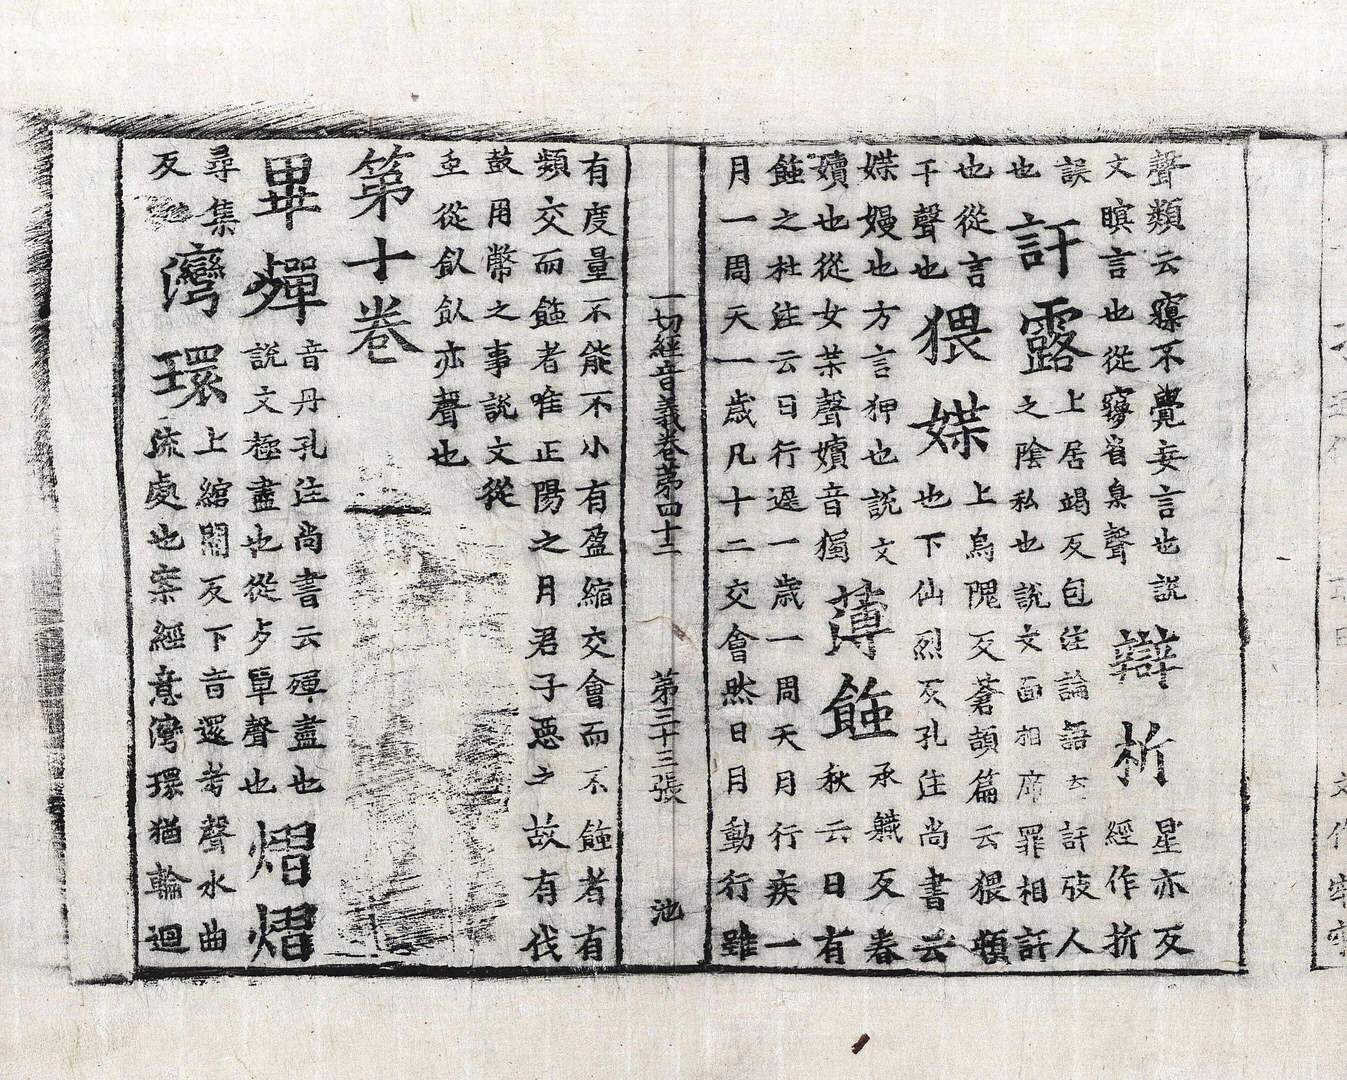 聲類云𡪢不覺妄言也說
文瞑言也從㝱省臬聲
辯析
星亦反
經作折
誤
也
訐露
上居竭反包注論語云訐攻人
之陰私也說文面相席罪相訐
也從言
干聲也
猥媟
上烏隗反蒼頡篇云猥頓
也下仙烈反孔注尚書云
媟嫚也方言狎也說文
嬻也從女枼聲嬻音獨
薄蝕
承軄反春
秋云日有
蝕之杜注云日行遲一歲一周天月行疾一
月一周天一歲凡十二交會然日月動行雖
一切經音義卷第四十二
第三十三張
池
有度量不能不小有盈縮交會而不蝕者有
頻交而蝕者唯正陽之月君子惡之故有伐
鼓用幣之事說文從
虫從飤飤亦聲也
第十卷
畢殫
音丹孔注尚書云殫盡也
說文極盡也從歹單聲也
熠熠
尋集
反
灣環
上綰關反下音還考聲水曲
流處也案經意灣環猶輪迴